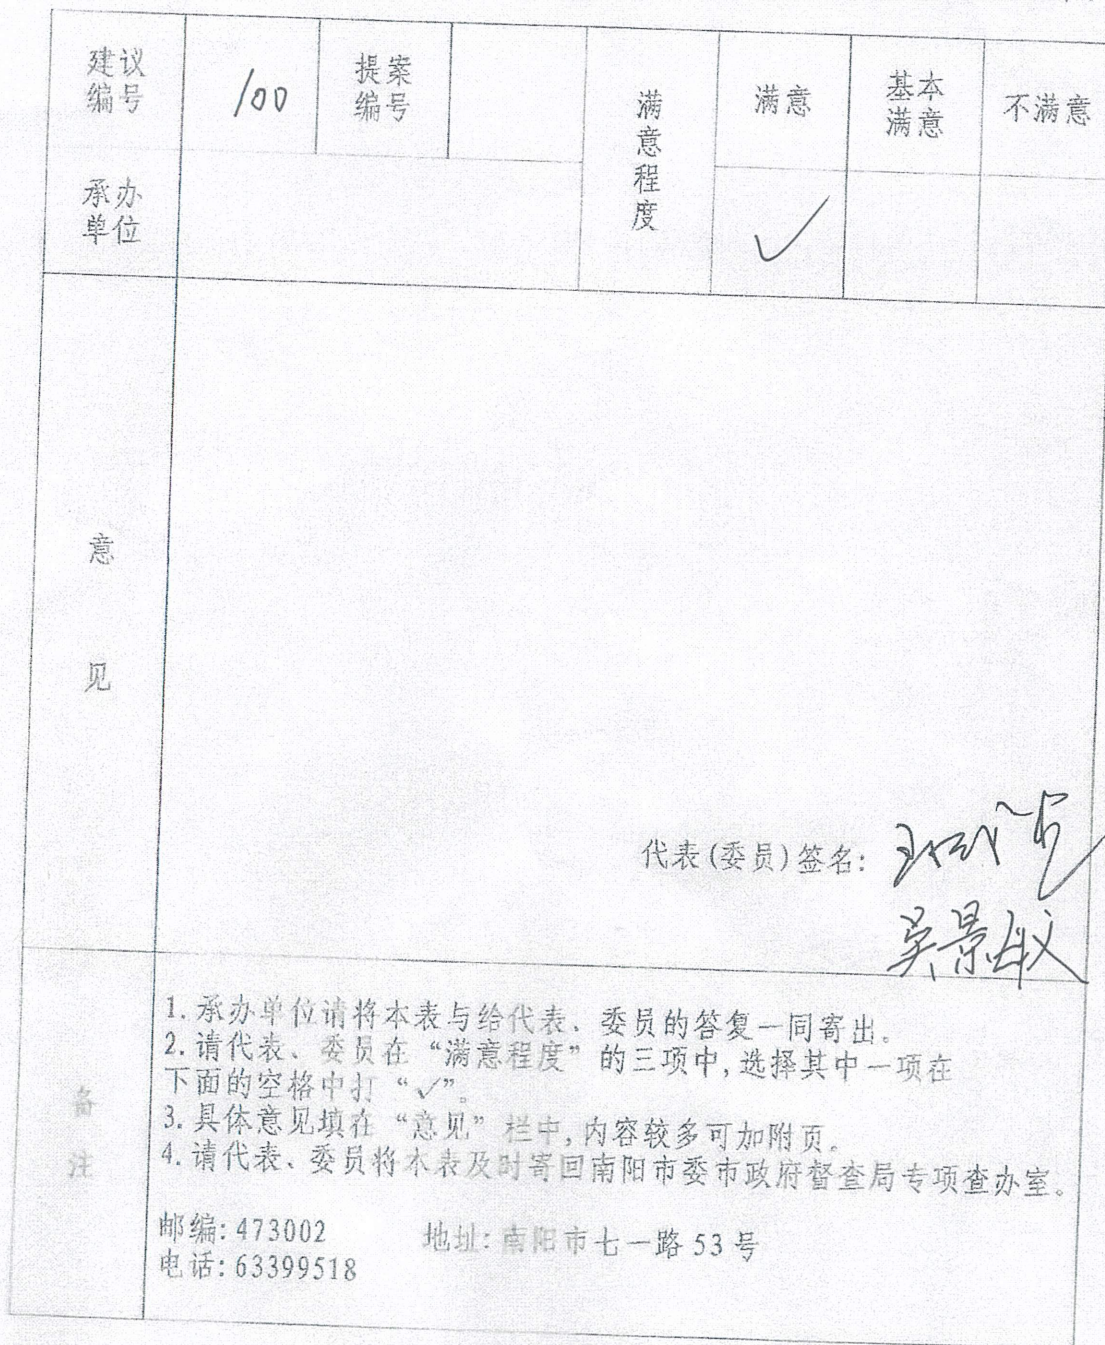 建议编号 100 提案编号 满意程度 满意 基本满意 不满意
承办单位 ✓
意见
代表(委员)签名:
吴景敏
备注
1. 承办单位请将本表与给代表、委员的答复一同寄出。
2. 请代表、委员在“满意程度”的三项中,选择其中一项在
下面的空格中打“✓”。
3. 具体意见填在“意见”栏中,内容较多可加附页。
4. 请代表、委员将本表及时寄回南阳市委市政府督查局专项查办室。
邮编: 473002 地址: 南阳市七一路 53 号
电话: 63399518